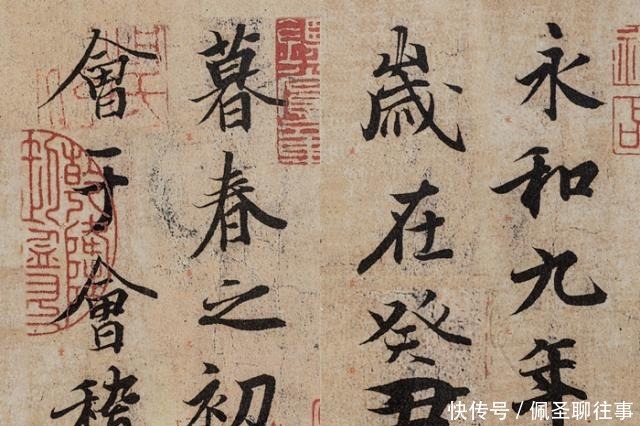 永和九年
歲在癸丑
暮春之初
會于會稽
快传号／佩圣聊往事